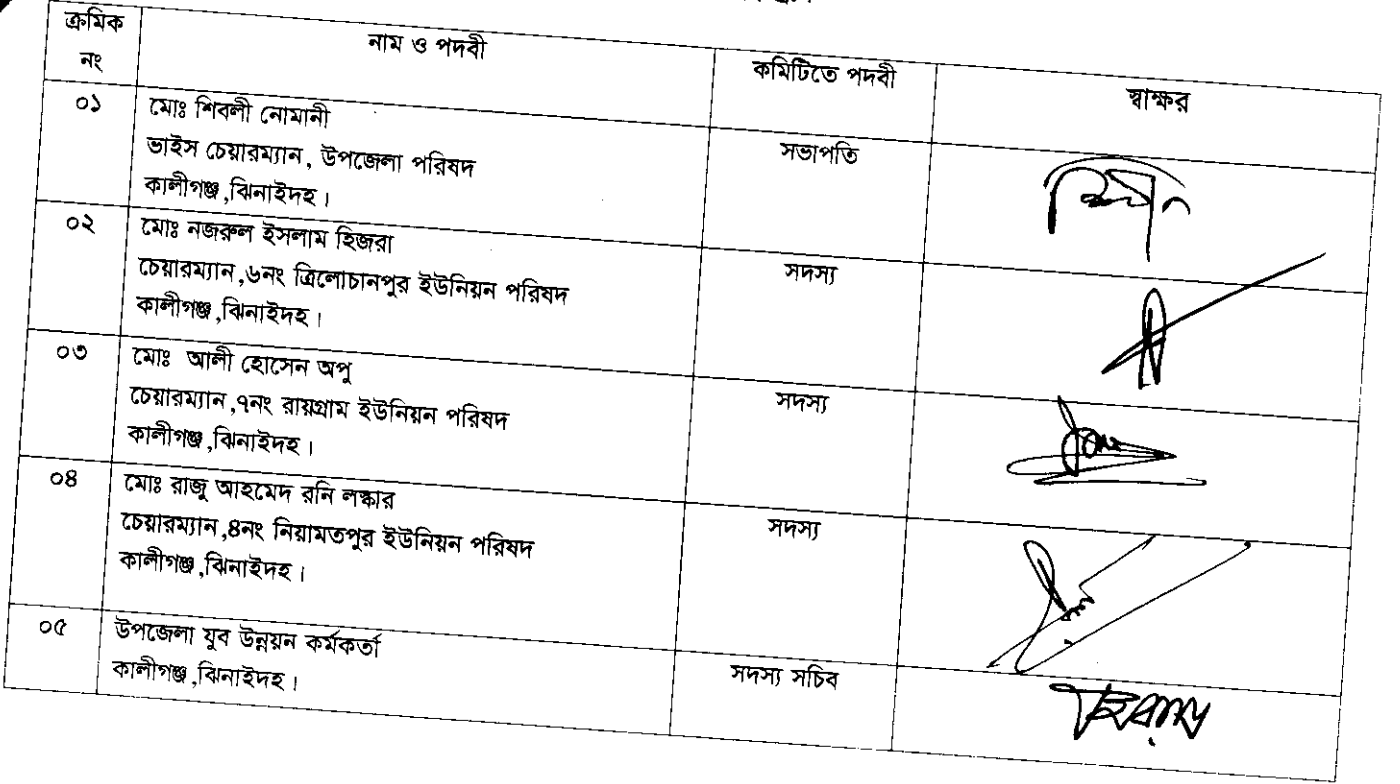 ক্রমিক নং নাম ও পদবী কমিটিতে পদবী স্বাক্ষর
০১ মোঃ শিবলী নোমানী সভাপতি
ভাইস চেয়ারম্যান, উপজেলা পরিষদ
কালীগঞ্জ,ঝিনাইদহ।
০২ মোঃ নজরুল ইসলাম হিজরা সদস্য
চেয়ারম্যান,৬নং ত্রিলোচানপুর ইউনিয়ন পরিষদ
কালীগঞ্জ,ঝিনাইদহ।
০৩ মোঃ আলী হোসেন অপু সদস্য
চেয়ারম্যান,৭নং রায়গ্রাম ইউনিয়ন পরিষদ
কালীগঞ্জ,ঝিনাইদহ।
০৪ মোঃ রাজু আহমেদ রনি লস্কার সদস্য
চেয়ারম্যান,৪নং নিয়ামতপুর ইউনিয়ন পরিষদ
কালীগঞ্জ,ঝিনাইদহ।
০৫ উপজেলা যুব উন্নয়ন কর্মকর্তা সদস্য সচিব
কালীগঞ্জ,ঝিনাইদহ।